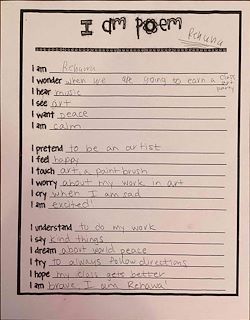 I am poem
Rehana
I am Rehana
I wonder when we are going to earn a class art party
I hear music
I see art
I want peace
I am calm
I pretend to be an artist
I feel happy
I touch art, a paintbrush
I worry about my work in art
I cry when I am sad
I am excited!
I understand to do my work
I say kind things
I dream about world peace
I try to always follow directions
I hope my class gets better
I am brave, I am Rehana!